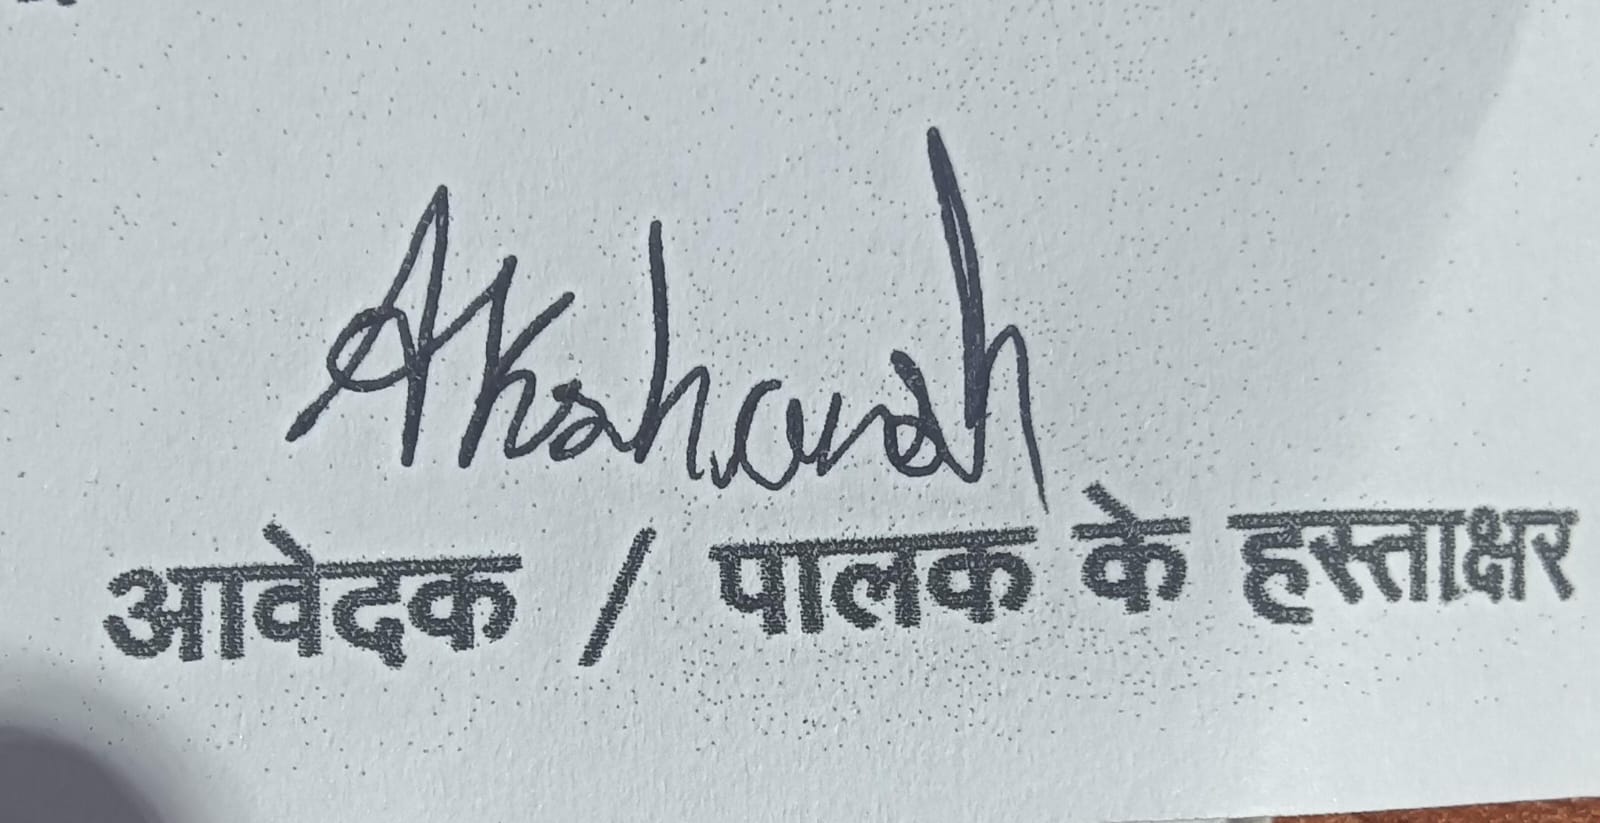 Aksharsh
आवेदक / पालक के हस्ताक्षर